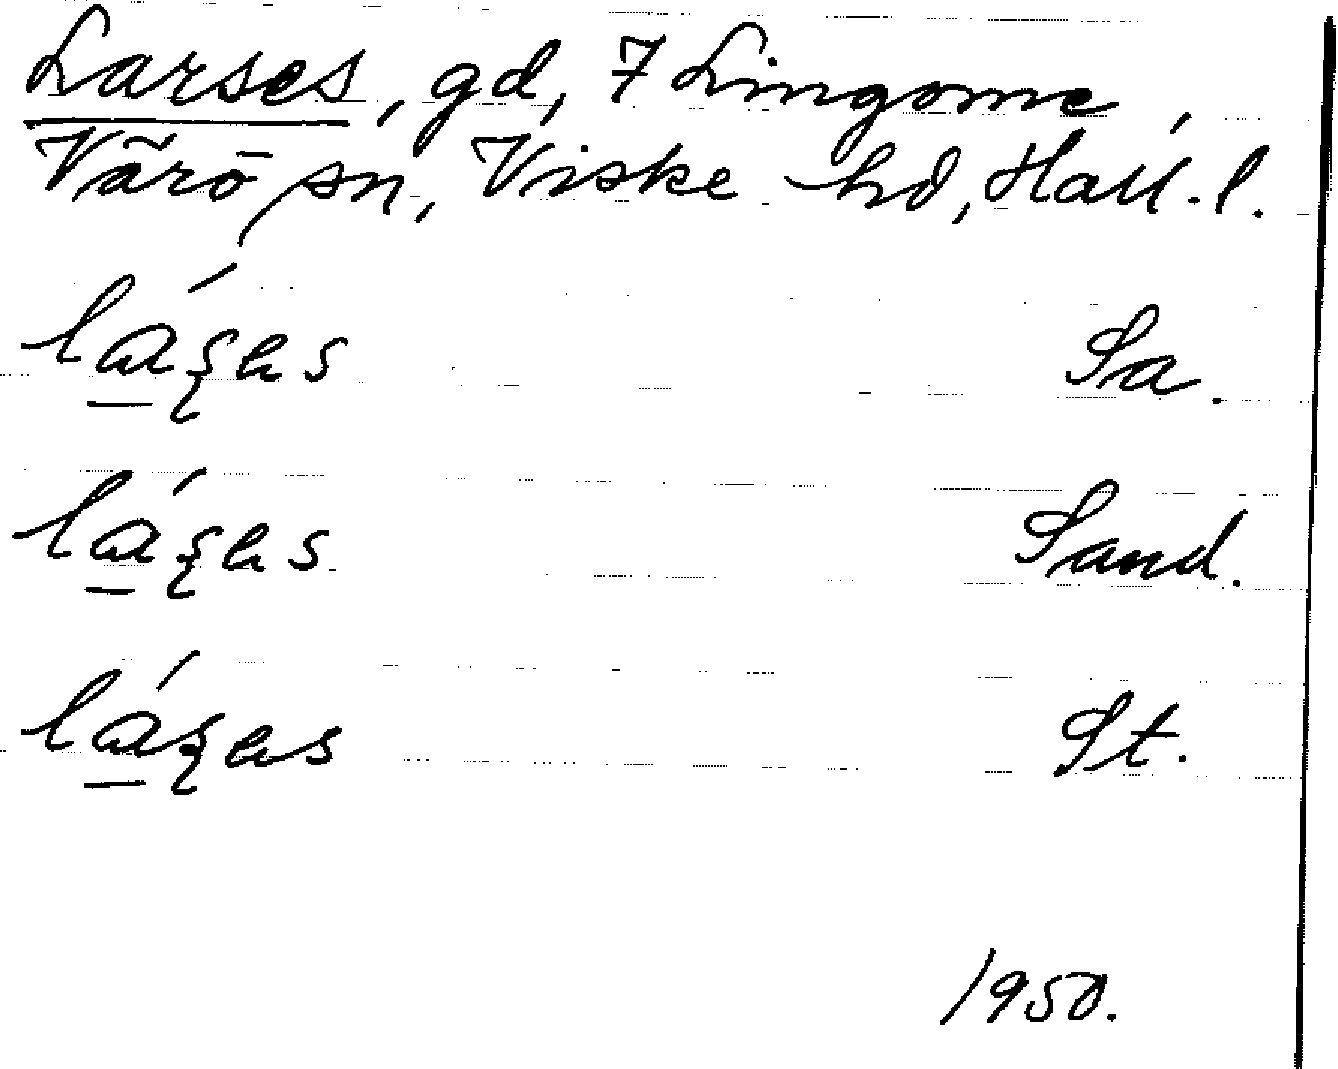 Larses, gd, 7 Lingome,
Värö sn, Viske hd, Hall. l.
lá̱ʂɐs Sa.
lá̱ʂɐs Sand.
lá̱ʂɐs St.
1950.